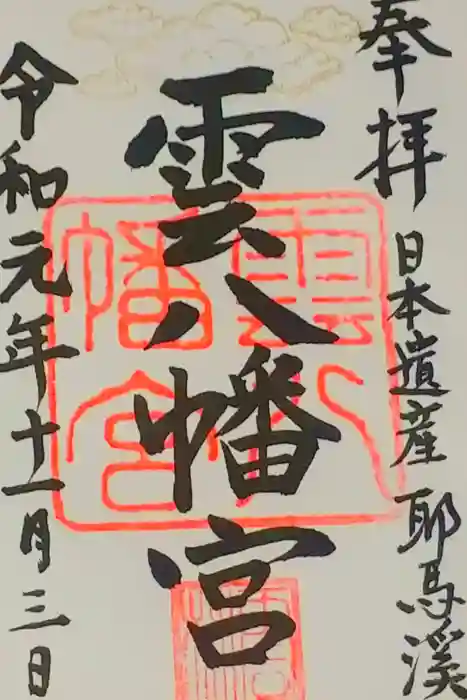 奉拝
日本遺産 耶馬溪
雲八幡宮
雲八幡宮
令和元年十一月三日